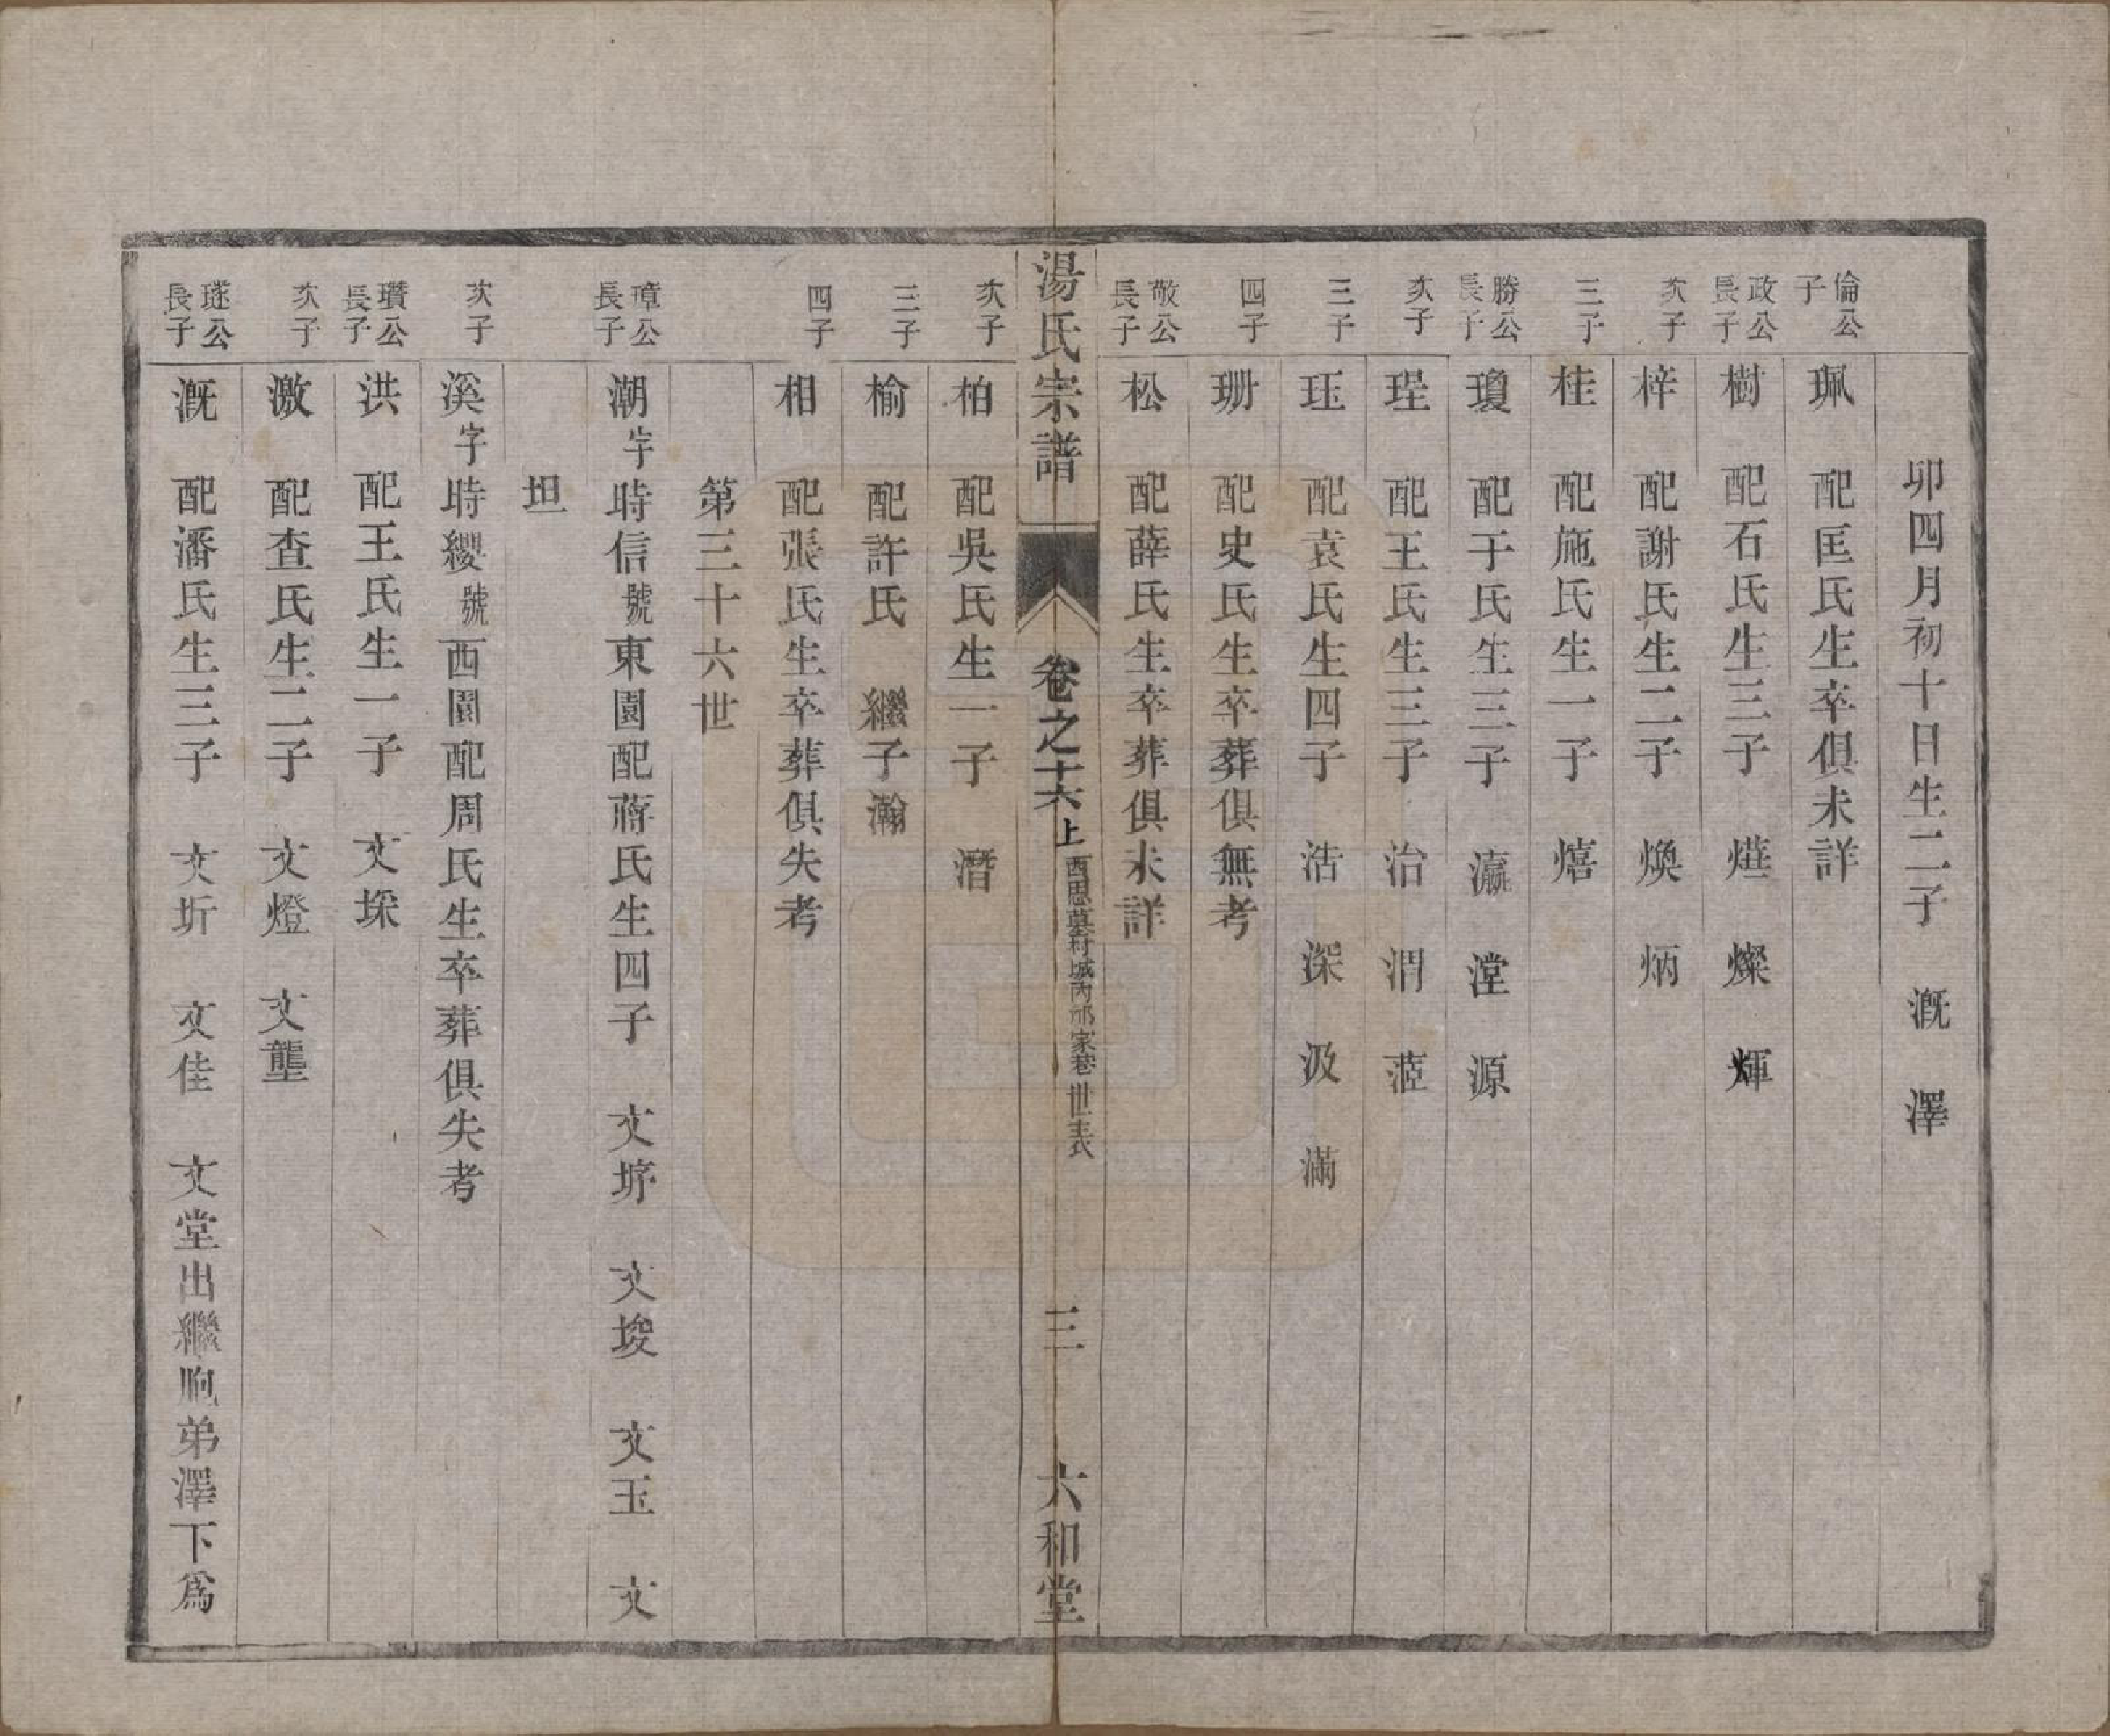 卯四月初十日生二子 溉 澤
倫公子 珮 配匡氏生卒俱未詳
政公長子 樹 配石氏生三子 燕 燦 輝
次子 梓 配謝氏生二子 煥 炳
三子 桂 配施氏生一子 熺
勝公長子 瓊 配于氏生三子 瀛 瀅 源
次子 珵 配王氏生三子 治 潤
三子 珏 配袁氏生四子 浩 深 汲 滿
四子 珊 配史氏生卒葬俱無考
敬公長子 松 配薛氏生卒葬俱未詳
湯氏宗譜 卷之十六上 西恩墓村城內邰家巷世表 三 六和堂
次子 柏 配吳氏生一子 潛
三子 榆 配許氏 繼子瀚
四子 相 配張氏生卒葬俱失考
第三十六世
璋公長子 潮字時信號東園配蔣氏生四子 文垿 文埈 文玉 文
坦
次子 溪字時纓號西園配周氏生卒葬俱失考
瓚公長子 洪 配王氏生一子 文埰
次子 激 配查氏生二子 文燈 文壟
璲公長子 溉 配潘氏生三子 文圻 文佳 文堂出繼胞弟澤下爲